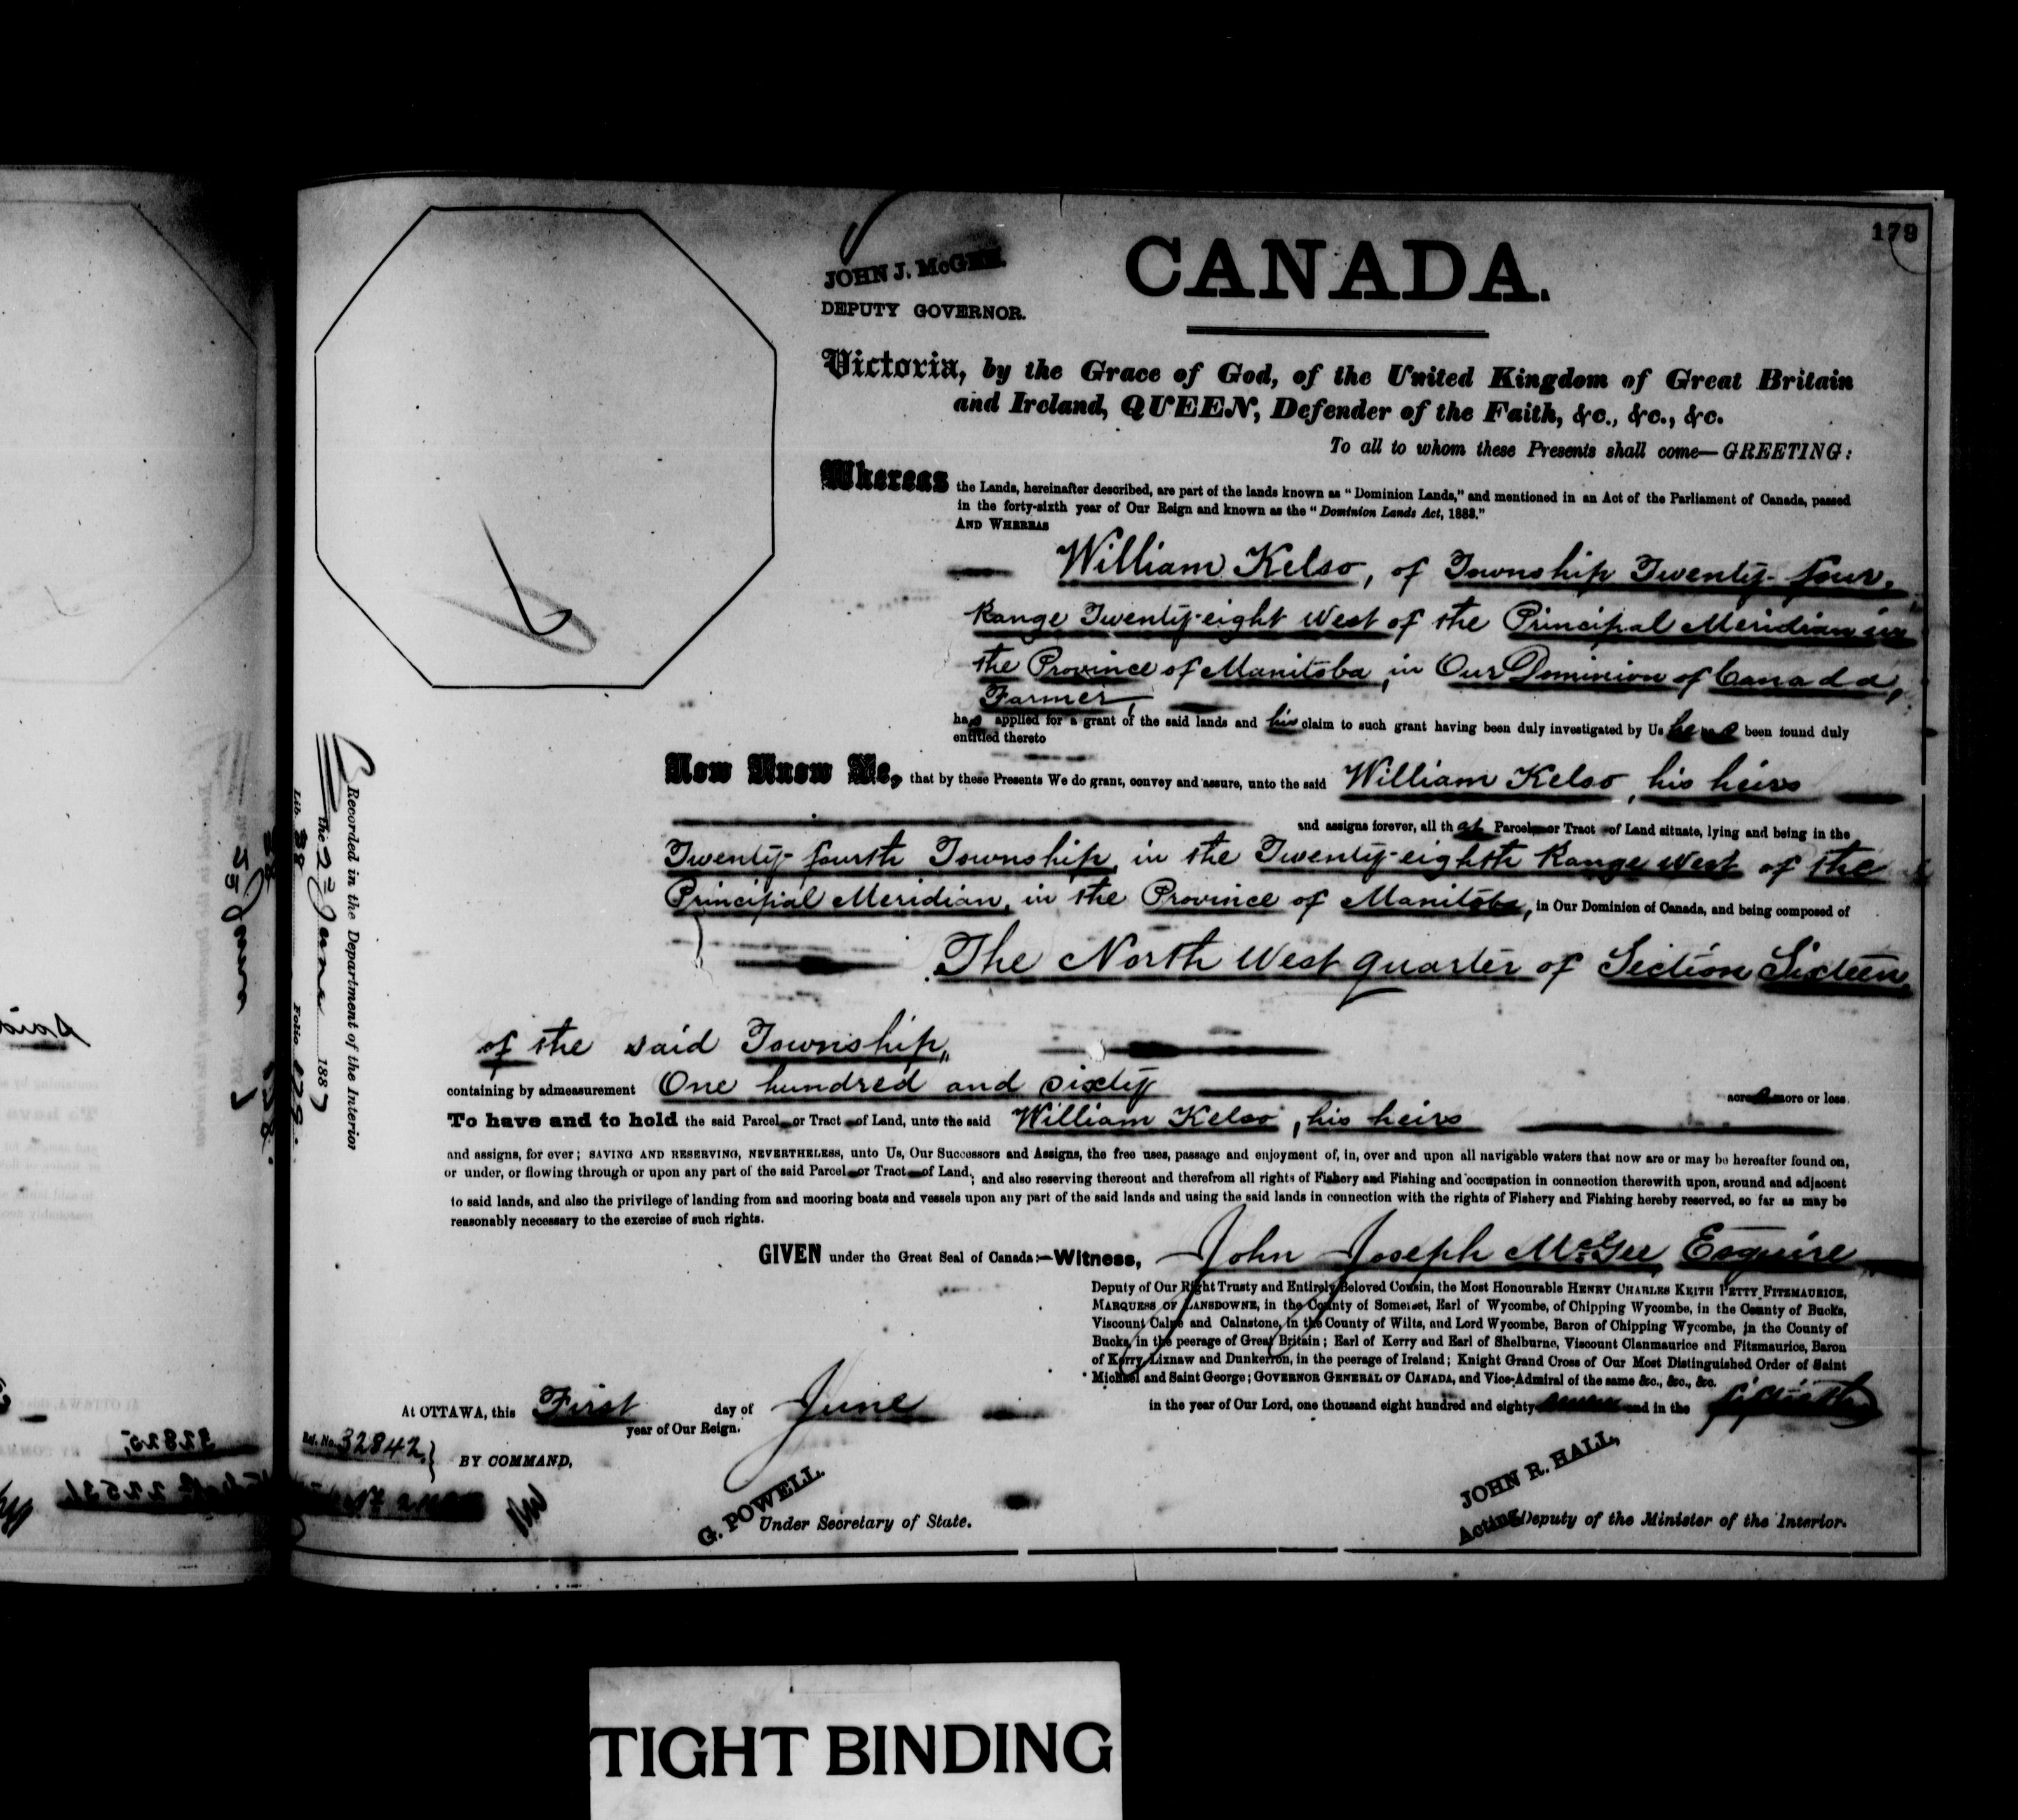 179
JOHN J. McGEE.
DEPUTY GOVERNOR.
CANADA.
Victoria, by the Grace of God, of the United Kingdom of Great Britain
and Ireland, QUEEN, Defender of the Faith, &c., &c., &c.
To all to whom these Presents shall come—GREETING:
Whereas the Lands, hereinafter described, are part of the lands known as "Dominion Lands," and mentioned in an Act of the Parliament of Canada, passed
in the forty-sixth year of Our Reign and known as the "Dominion Lands Act, 1883."
AND WHEREAS
William Kelso, of Township Twenty-four,
Range Twenty-eight West of the Principal Meridian in
the Province of Manitoba, in Our Dominion of Canada,
Farmer,
has applied for a grant of the said lands and his claim to such grant having been duly investigated by Us he has been found duly
entitled thereto
Now Know Ye, that by these Presents We do grant, convey and assure, unto the said William Kelso, his heirs
and assigns forever, all that Parcel or Tract of Land situate, lying and being in the
Twenty-fourth Township, in the Twenty-eighth Range West of the
Principal Meridian, in the Province of Manitoba, in Our Dominion of Canada, and being composed of
The North West quarter of Section Sixteen,
of the said Township,
containing by admeasurement One hundred and sixty acres more or less.
To have and to hold the said Parcel or Tract of Land, unto the said William Kelso, his heirs
and assigns, for ever; SAVING AND RESERVING, NEVERTHELESS, unto Us, Our Successors and Assigns, the free uses, passage and enjoyment of, in, over and upon all navigable waters that now are or may be hereafter found on,
or under, or flowing through or upon any part of the said Parcel or Tract of Land; and also reserving thereout and therefrom all rights of Fishery and Fishing and occupation in connection therewith upon, around and adjacent
to said lands, and also the privilege of landing from and mooring boats and vessels upon any part of the said lands and using the said lands in connection with the rights of Fishery and Fishing hereby reserved, so far as may be
reasonably necessary to the exercise of such rights.
GIVEN under the Great Seal of Canada:—Witness, John Joseph McGee, Esquire
Deputy of Our Right Trusty and Entirely Beloved Cousin, the Most Honourable HENRY CHARLES KEITH PETTY FITZMAURICE,
MARQUESS OF LANSDOWNE, in the County of Somerset, Earl of Wycombe, of Chipping Wycombe, in the County of Bucks,
Viscount Calne and Calnstone, in the County of Wilts, and Lord Wycombe, Baron of Chipping Wycombe, in the County of
Bucks, in the peerage of Great Britain; Earl of Kerry and Earl of Shelburne, Viscount Clanmaurice and Fitzmaurice, Baron
of Kerry, Lixnaw and Dunkerron, in the peerage of Ireland; Knight Grand Cross of Our Most Distinguished Order of Saint
Michael and Saint George; GOVERNOR GENERAL OF CANADA, and Vice-Admiral of the same &c., &c., &c.
At OTTAWA, this First day of June in the year of Our Lord, one thousand eight hundred and eighty seven and in the fiftieth
year of Our Reign.
Ref. No. 32842
BY COMMAND,
G. POWELL.
Under Secretary of State.
JOHN R. HALL,
Acting Deputy of the Minister of the Interior.
Recorded in the Department of the Interior
the 22 June 1887
Lib. 38 Folio 179
TIGHT BINDING